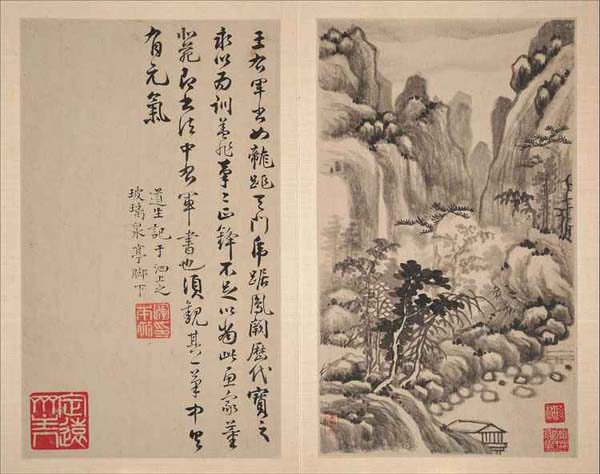 王右軍書如龍跳天門虎踞鳳闕歷代寶之
永以為訓蓋非筆々正鋒不足以當此畫家董
北苑即書法中右軍書也須觀其一筆中具
有元氣
道生記于泗上之
玻璃泉亭腳下